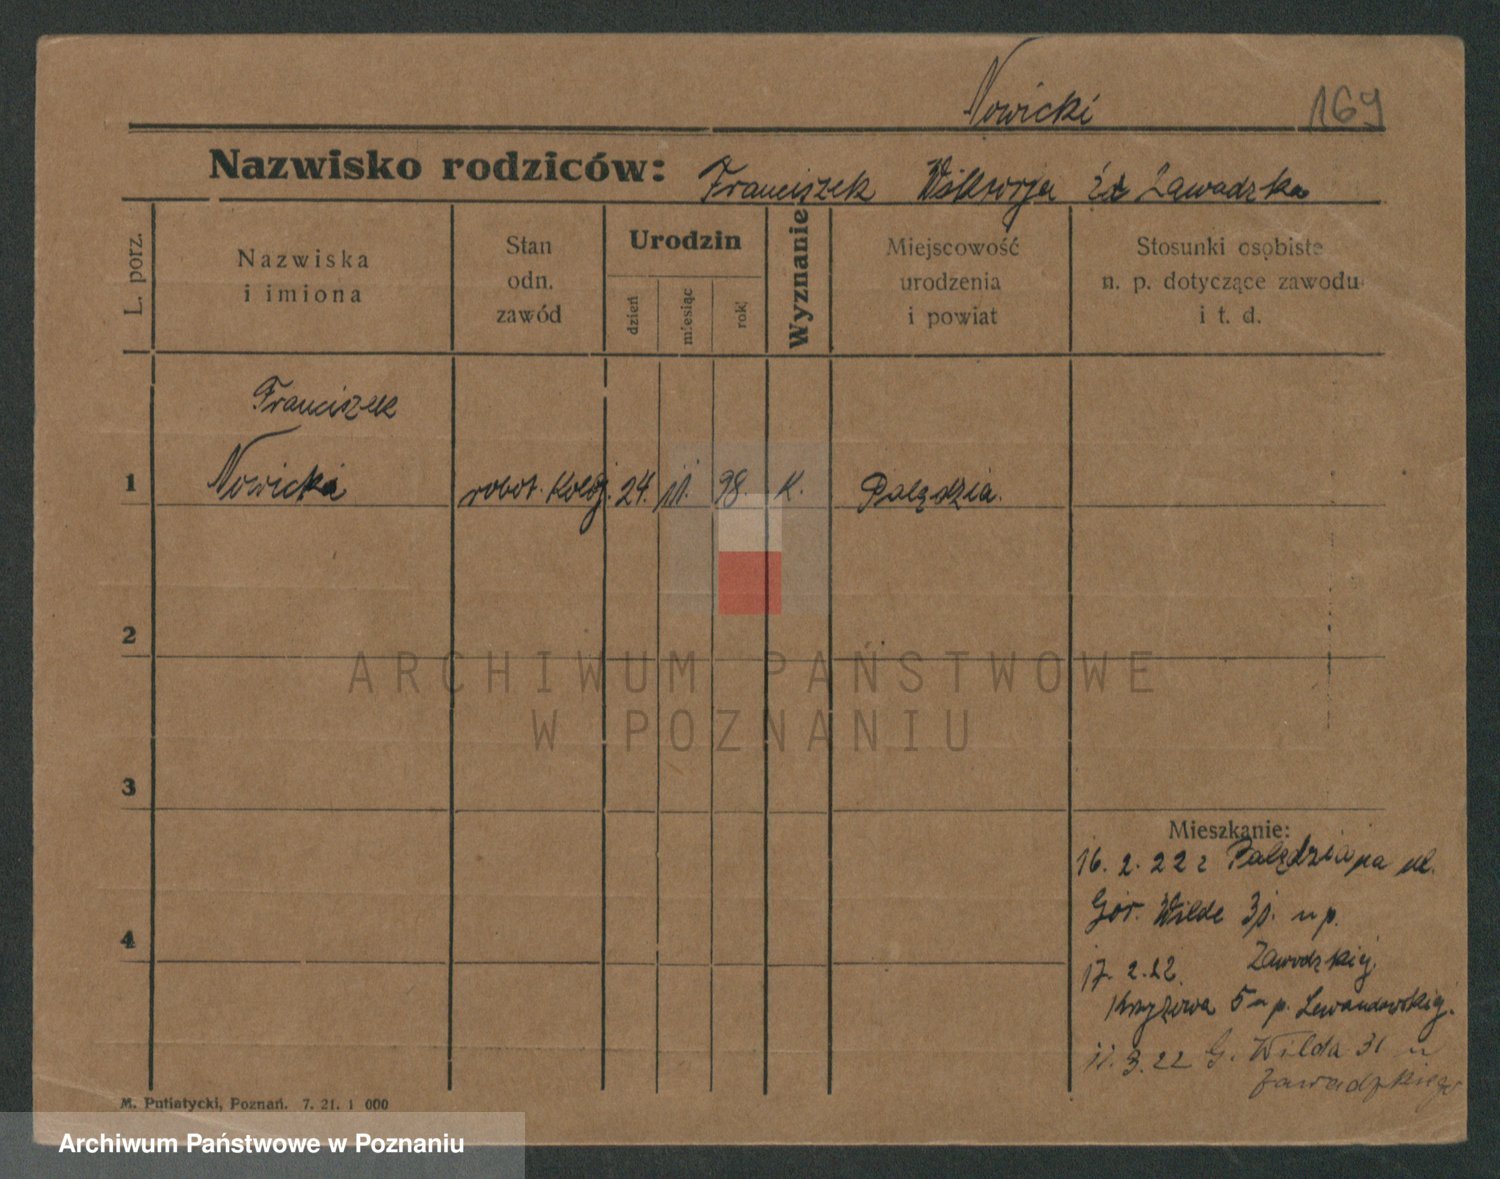 Nowicki 169
Nazwisko rodziców: Franciszek Wiktorja Zawadzka
L. porz.
Nazwiska
i imiona
Stan
odn.
zawód
Urodzin
dzień
miesiąc
rok
Wyznanie
Miejscowość
urodzenia
i powiat
Stosunki osobiste
n. p. dotyczące zawodu
i t. d.
Franciszek
1 Nowicki robot. 24. 11. 98. K. Palędzia.
2
3
4
ARCHIWUM PAŃSTWOWE
W POZNANIU
Mieszkanie:
16. 2. 22 z Palędzia na ul.
Gór. Wilde 31. u p.
Zawadzkiej
17. 2. 22.
Krzyżowa 5 u p. Lewandowskiej.
11. 3. 22 G. Wilda 31 u
Zawadzkiego
M. Putiatycki, Poznań. 7. 21. 1 000
Archiwum Państwowe w Poznaniu